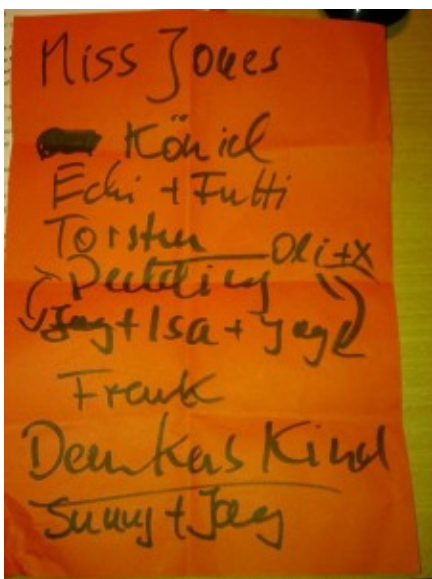 Miss Jones
König
Echi + Futti
Torsten
Oli + X
Pudding
Jay + Isa + Jage
Frank
Denkers Kind
Sunny + Jay